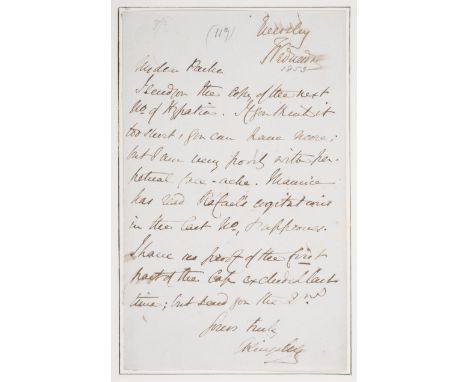 (119)
Eversley
Wednesday
1853
My dear Parker
I send you the copy of the next
No of Hypatia. If you think it
too short, you can have more;
but I am very poorly with per-
petual face-ache. Maurice
has read Rafael's cogitations
in the last No, & approves.
I have no proof of the first
part of the Cap excluded last
time; but send you the 2nd
Yours truly
CKingsley